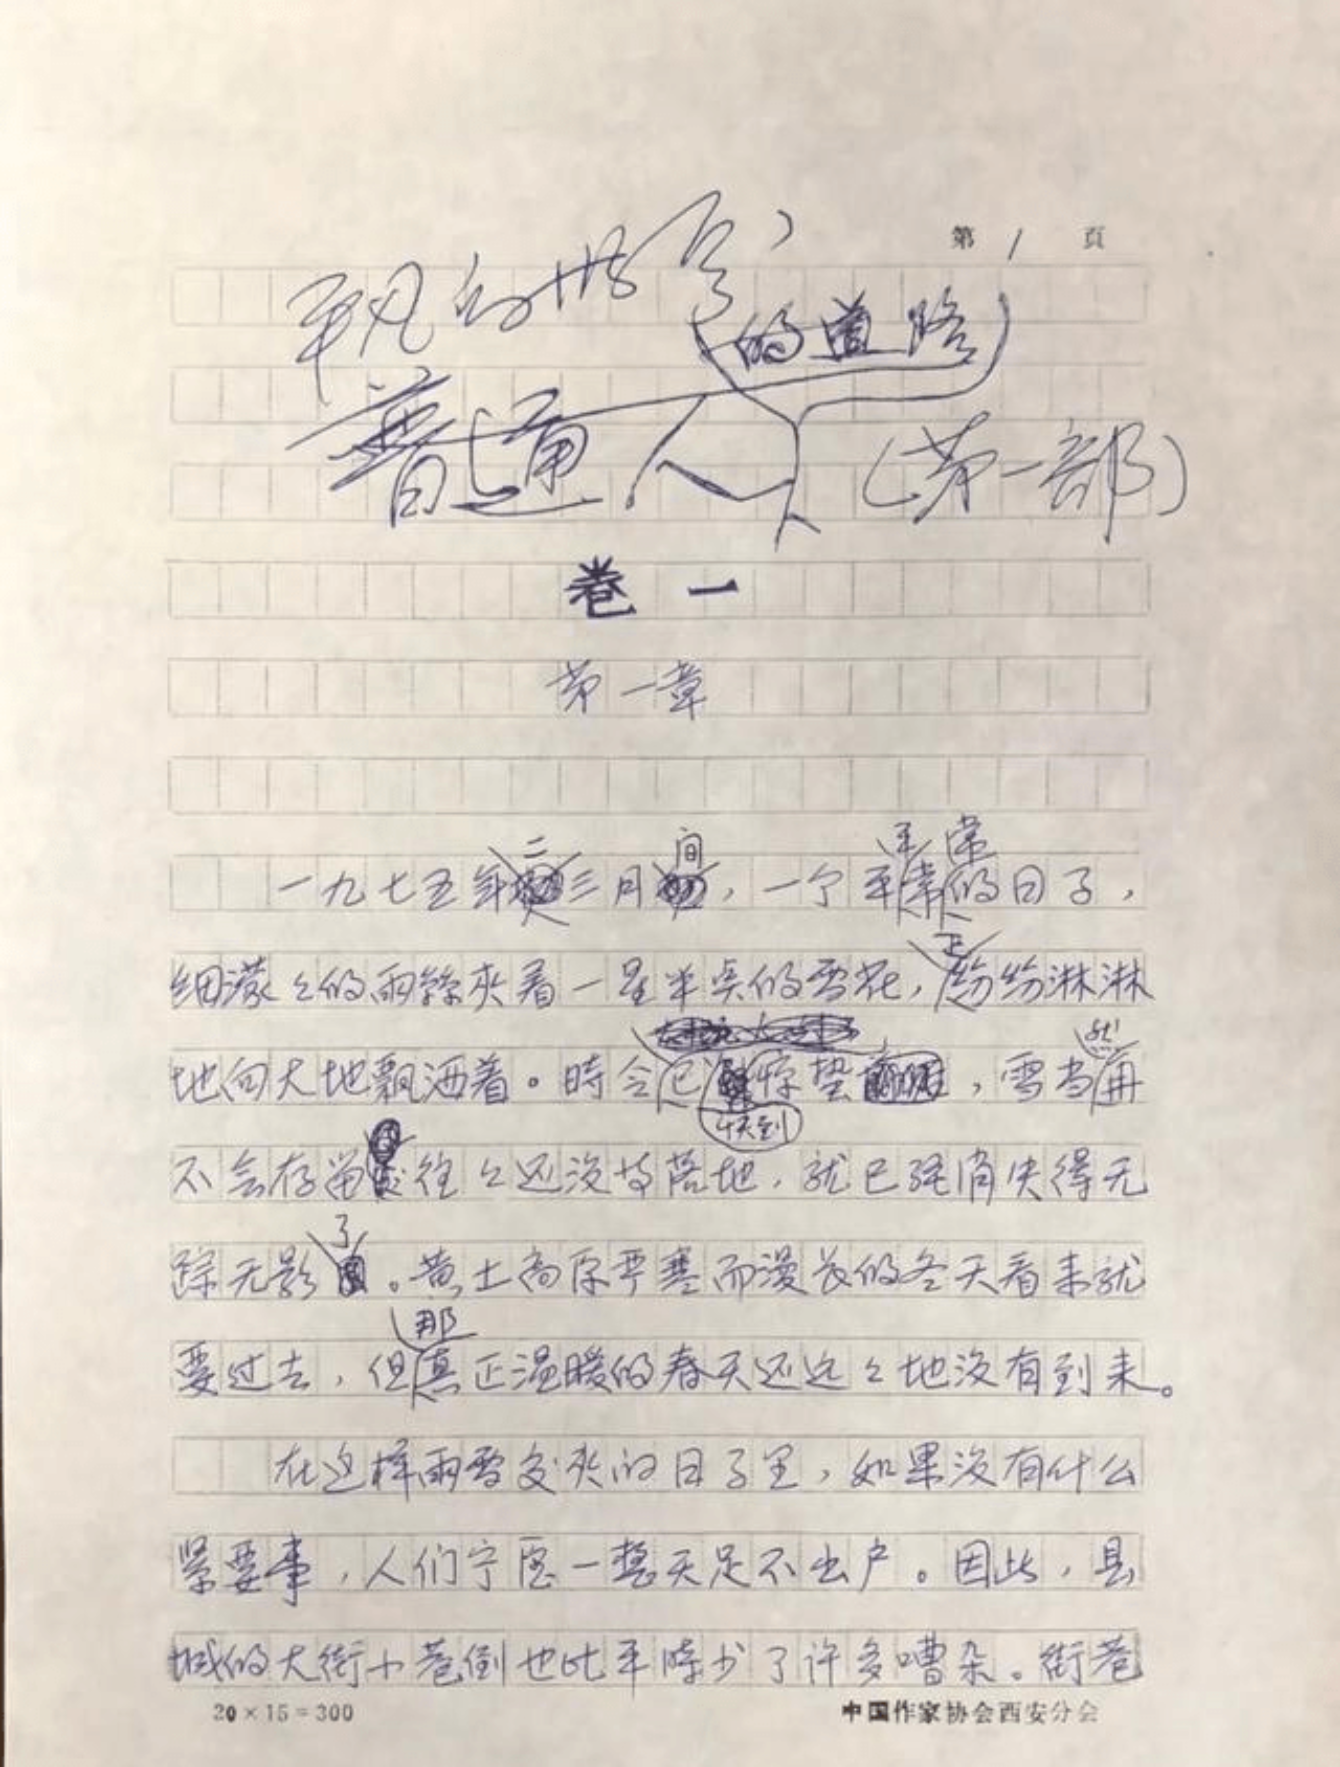 第 1 頁
平凡的世界
的道路
普通人 (第一部)
卷一
第一章
二 间 平常
一九七五年三月，一个平常的日子，
正
细濛々的雨丝夹着一星半点的雪花，纷纷淋淋
然
地向大地飘洒着。时令已惊蛰，雪当再
快到
不会存留往々还没等落地，就已经消失得无
了
踪无影。黄土高原严寒而漫长的冬天看来就
那
要过去，但真正温暖的春天还远々地没有到来。
在这样雨雪交夹的日子里，如果没有什么
紧要事，人们宁愿一整天足不出户。因此，县
城的大街小巷倒也比平时少了许多嘈杂。街巷
20×15=300 中国作家协会西安分会